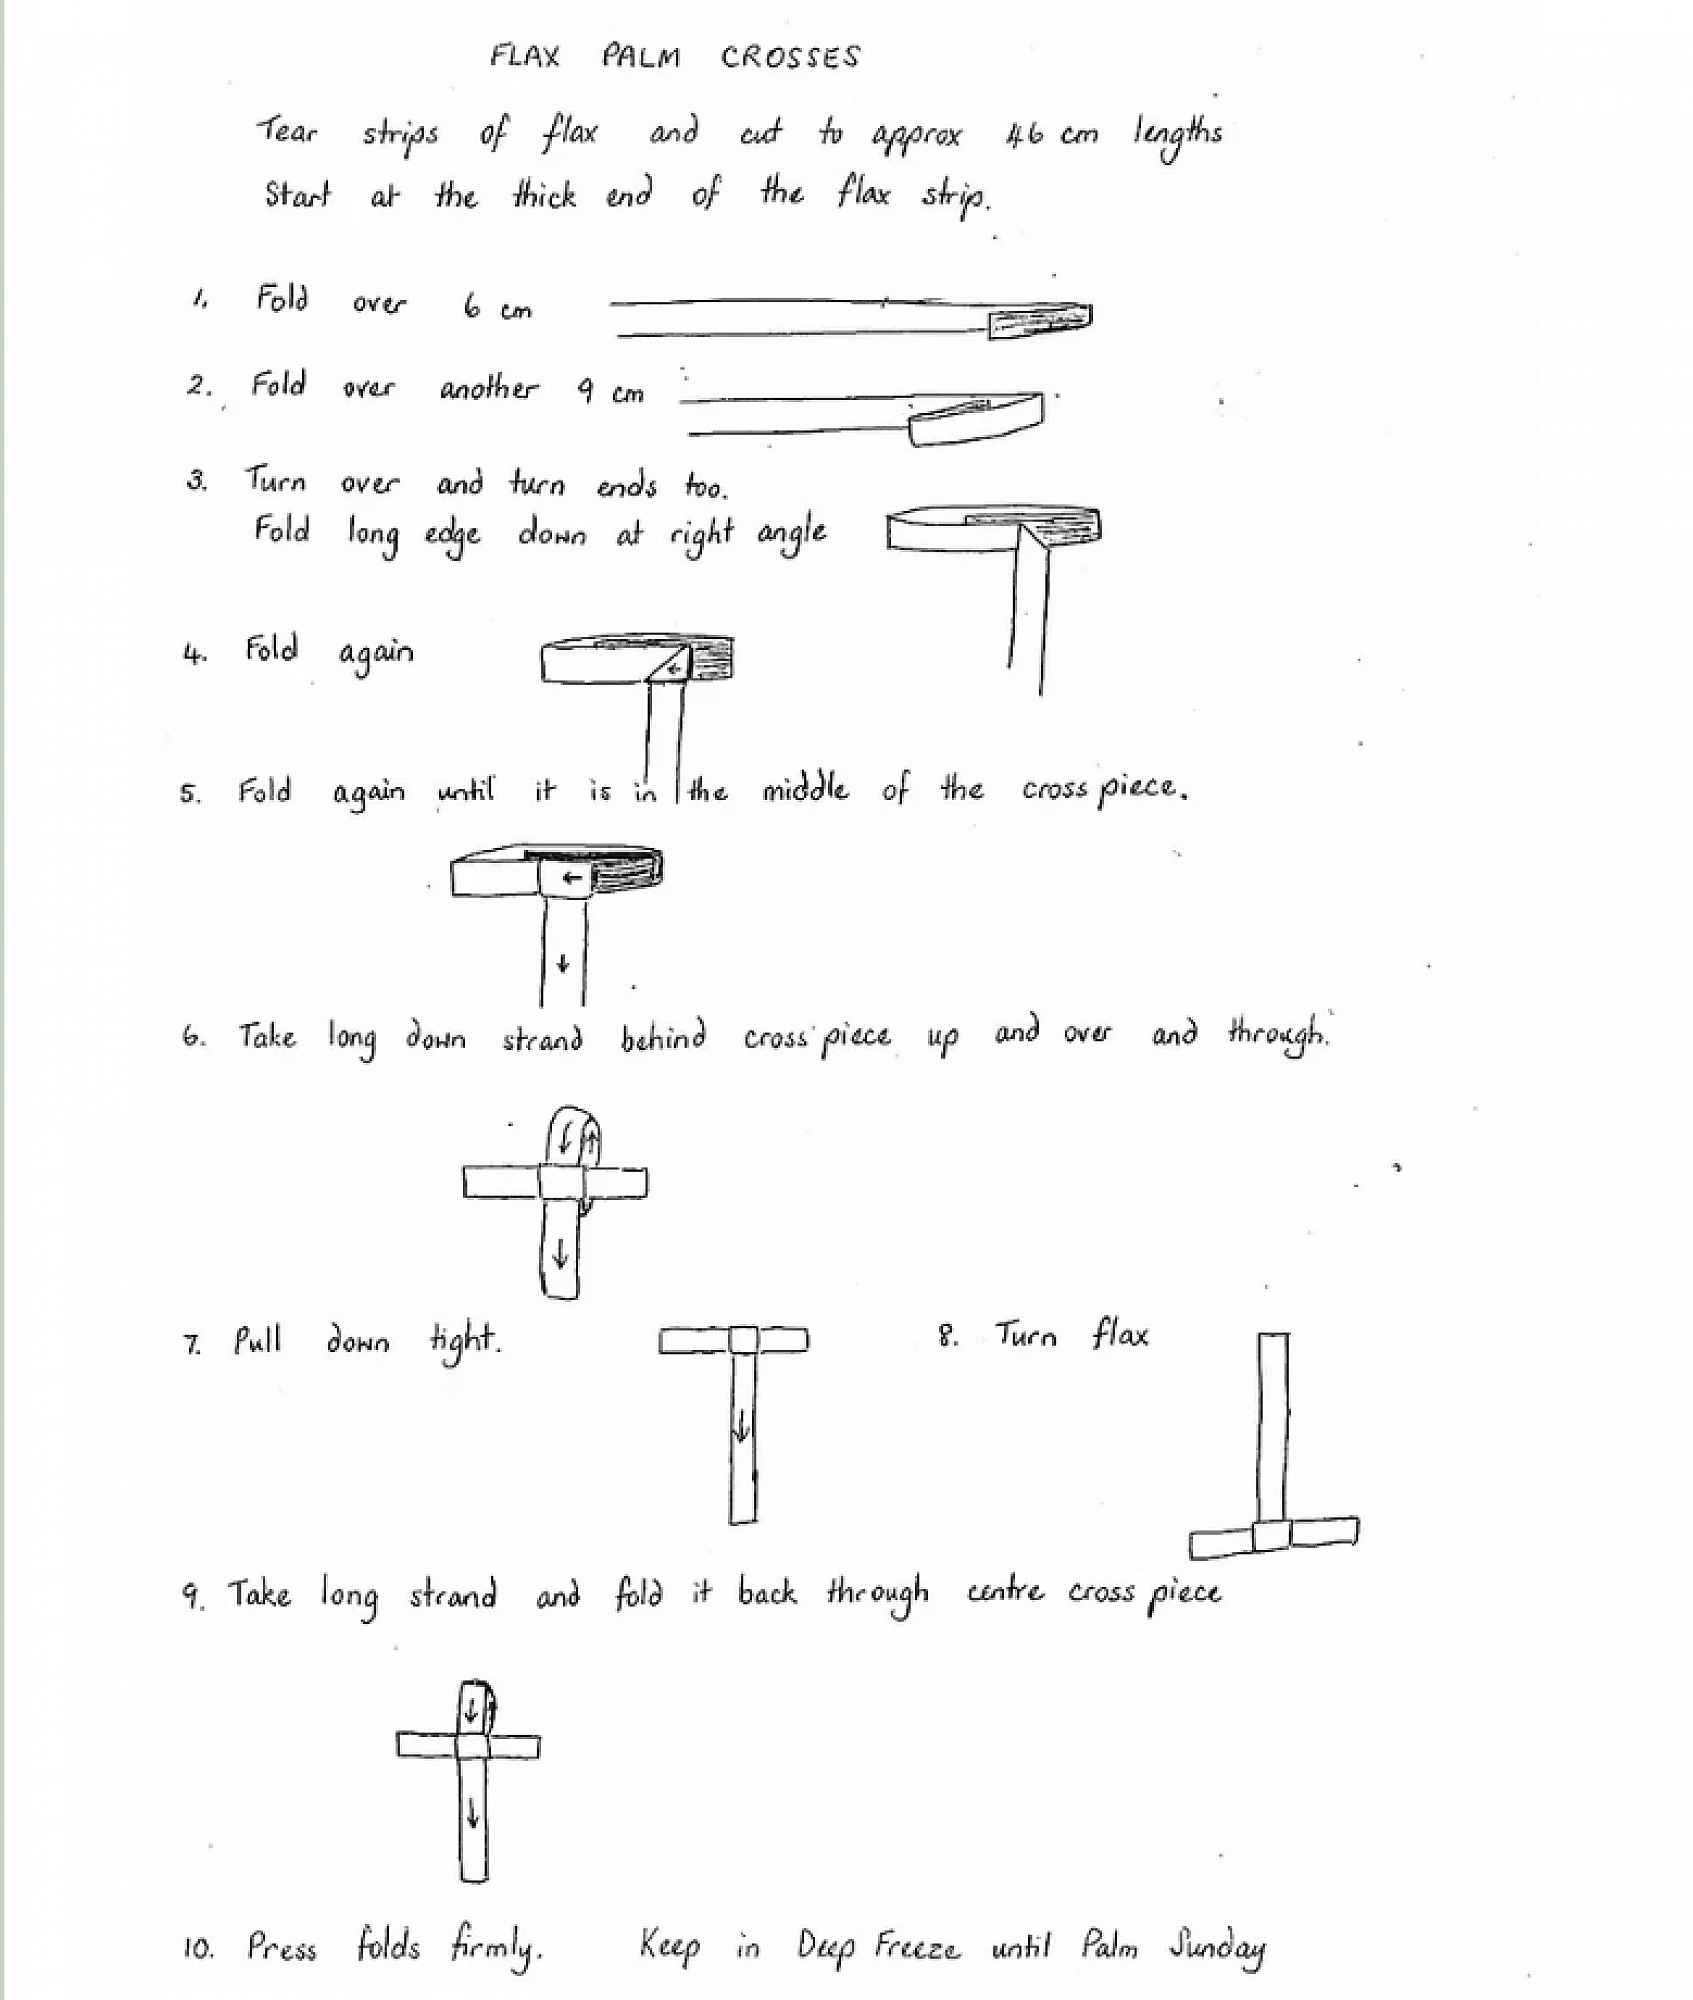 FLAX PALM CROSSES
Tear strips of flax and cut to approx 46 cm lengths
Start at the thick end of the flax strip.
1. Fold over 6 cm
2. Fold over another 9 cm
3. Turn over and turn ends too.
Fold long edge down at right angle
4. Fold again
5. Fold again until it is in the middle of the cross piece.
6. Take long down strand behind cross piece up and over and through.
7. Pull down tight.
8. Turn flax
9. Take long strand and fold it back through centre cross piece
10. Press folds firmly. Keep in Deep Freeze until Palm Sunday